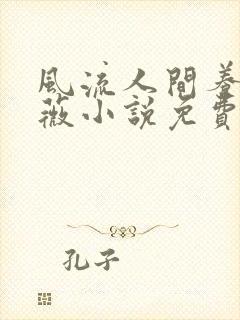 風流人間養
薇小說免費
孔子